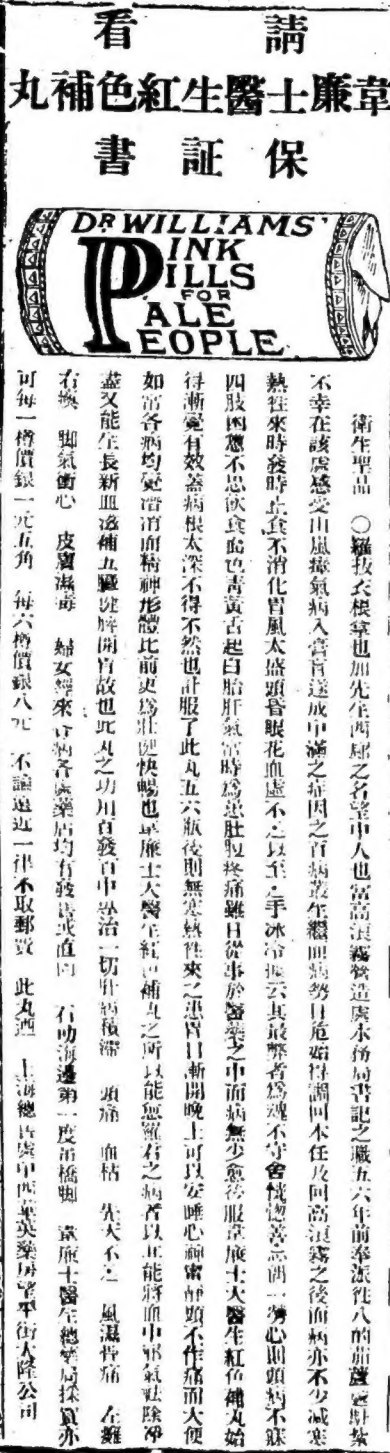 請看
韋廉士醫生紅色補丸
保証書
DR WILLIAMS'
PINK
PILLS
FOR
PALE
PEOPLE
衛生聖品 〇羅拔衣根拿也加先生西那之名望中人也當高浪霧營造處水務局書記之職五六年前奉派往八的茄蘆處駐紮
不幸在該處感受山嵐瘴氣病入膏肓遂成中滿之症因之百病叢生繼而病勢日危始得調回本任及回高浪霧之後而病亦不少減寒
熱往來時發時止食不消化胃風太盛頭昏眼花血虛不足以至手冰冷 其最弊者為魂不守舍恍惚善忘稍一勞心則頭病不寐
四肢困憊不思飲食面色青黃舌起白胎肝氣常時為患肚腹疼痛雖日從事於醫藥之中而病無少愈後服韋廉士大醫生紅色補丸始
得漸覺有效蓋病根太深不得不然也計服了此丸五六瓶後則無寒熱往來之患胃口漸開晚上可以安睡心神甯靜頭不作痛而大便
如常各病均覺潛消而精神形體比前更為壯健快暢也韋廉士大醫生紅色補丸之所以能愈羅君之病者以其能將血中邪氣祛除淨
盡又能生長新血滋補五臟健脾開胃故也此丸之功用百發百中專治一切肝病積滯 頭痛 血枯 先天不足 風濕骨痛 左癱
右瘓 脚氣衝心 皮膚濕毒 婦女經來各病各處藥店均有發售或直向 石叻海邊第一度吊橋脚 韋廉士醫生總藥局採買亦
可每一樽價銀一元五角 每六樽價銀八元 不論遠近一律不取郵費 此丸迺 上海總售處中西藥英藥房望平街大隆公司